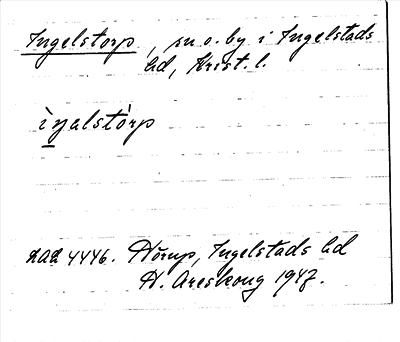 Ingelstorp, sn o. by i Ingelstads
hd, Krist. l.
ìŋəlstò̀rp
DAL 4446. Hörup, Ingelstads hd
H. Areskoug 1947.